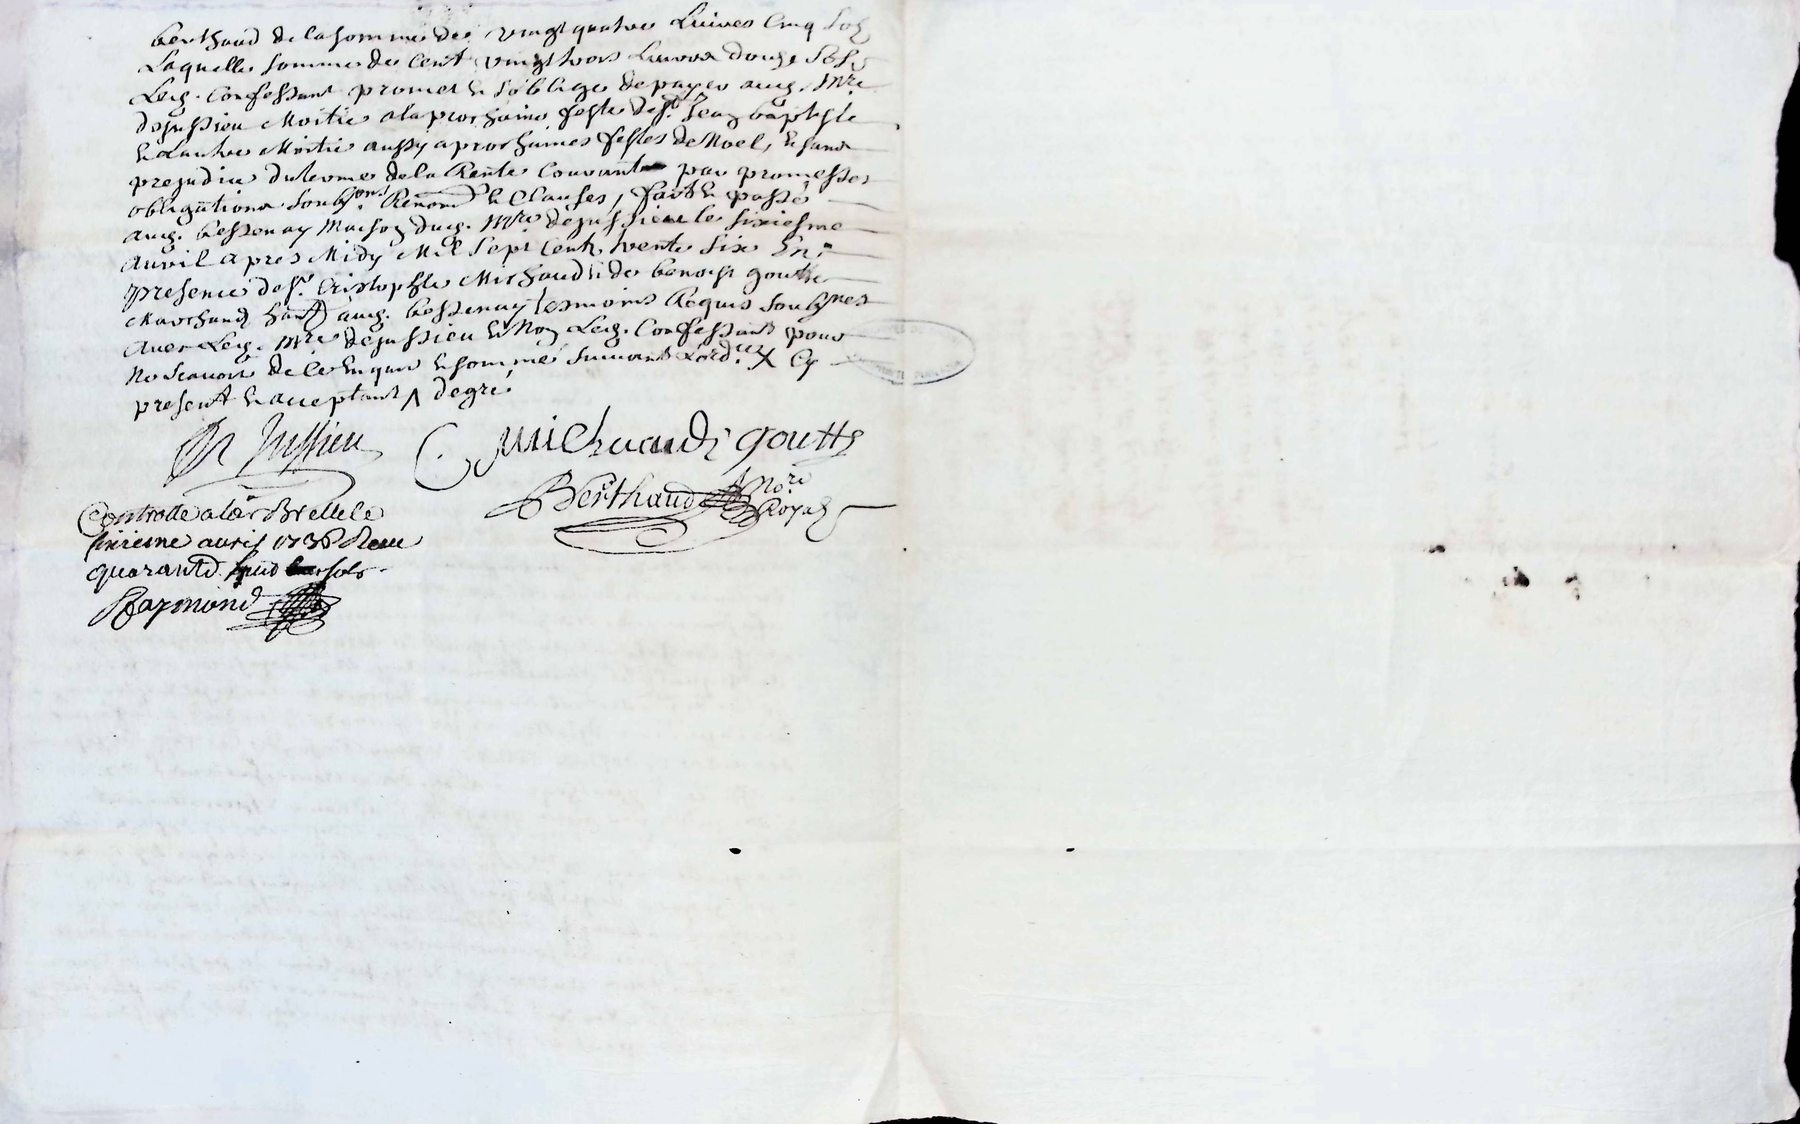 berthaud de la somme de vingt quatre Livres Cinq Sols
Laquelle somme de Cent vingt trois Livres douze Sols
Led. Confessant promet & s'oblige de payer aud. Mre
dejussieu Moitie a la prochaine feste de St. Jean baptiste
& Lautre Moitie aussy a prochaines festes de Noel, & sans
prejudice du terme de la Rente Courante par promesses
obligations Soubson. Renond. & Clauses, fait & passé
aud. bessenay Maison dud. Mre dejussieu le sixiesme
avril apres Midy Mil Sept Cent trente Six En
presence de Sr. Cristophle Michaud & de benoist goutte
Marchand hant. aud. bessenay tesmoins Requis Soubsnes
avec Led. Mre dejussieu & Non Led. Confessant pour
Ne Scavoir de ce Enquis & sommé suivant L'ordce X Cy
present & acceptant ^ degre
De Jussieu
C. Michaud goutte
Berthaud Nore
Royal
Controlle a lar Brelle le
sixieme avril 1736 Receu
quarante huit sols
Raymond